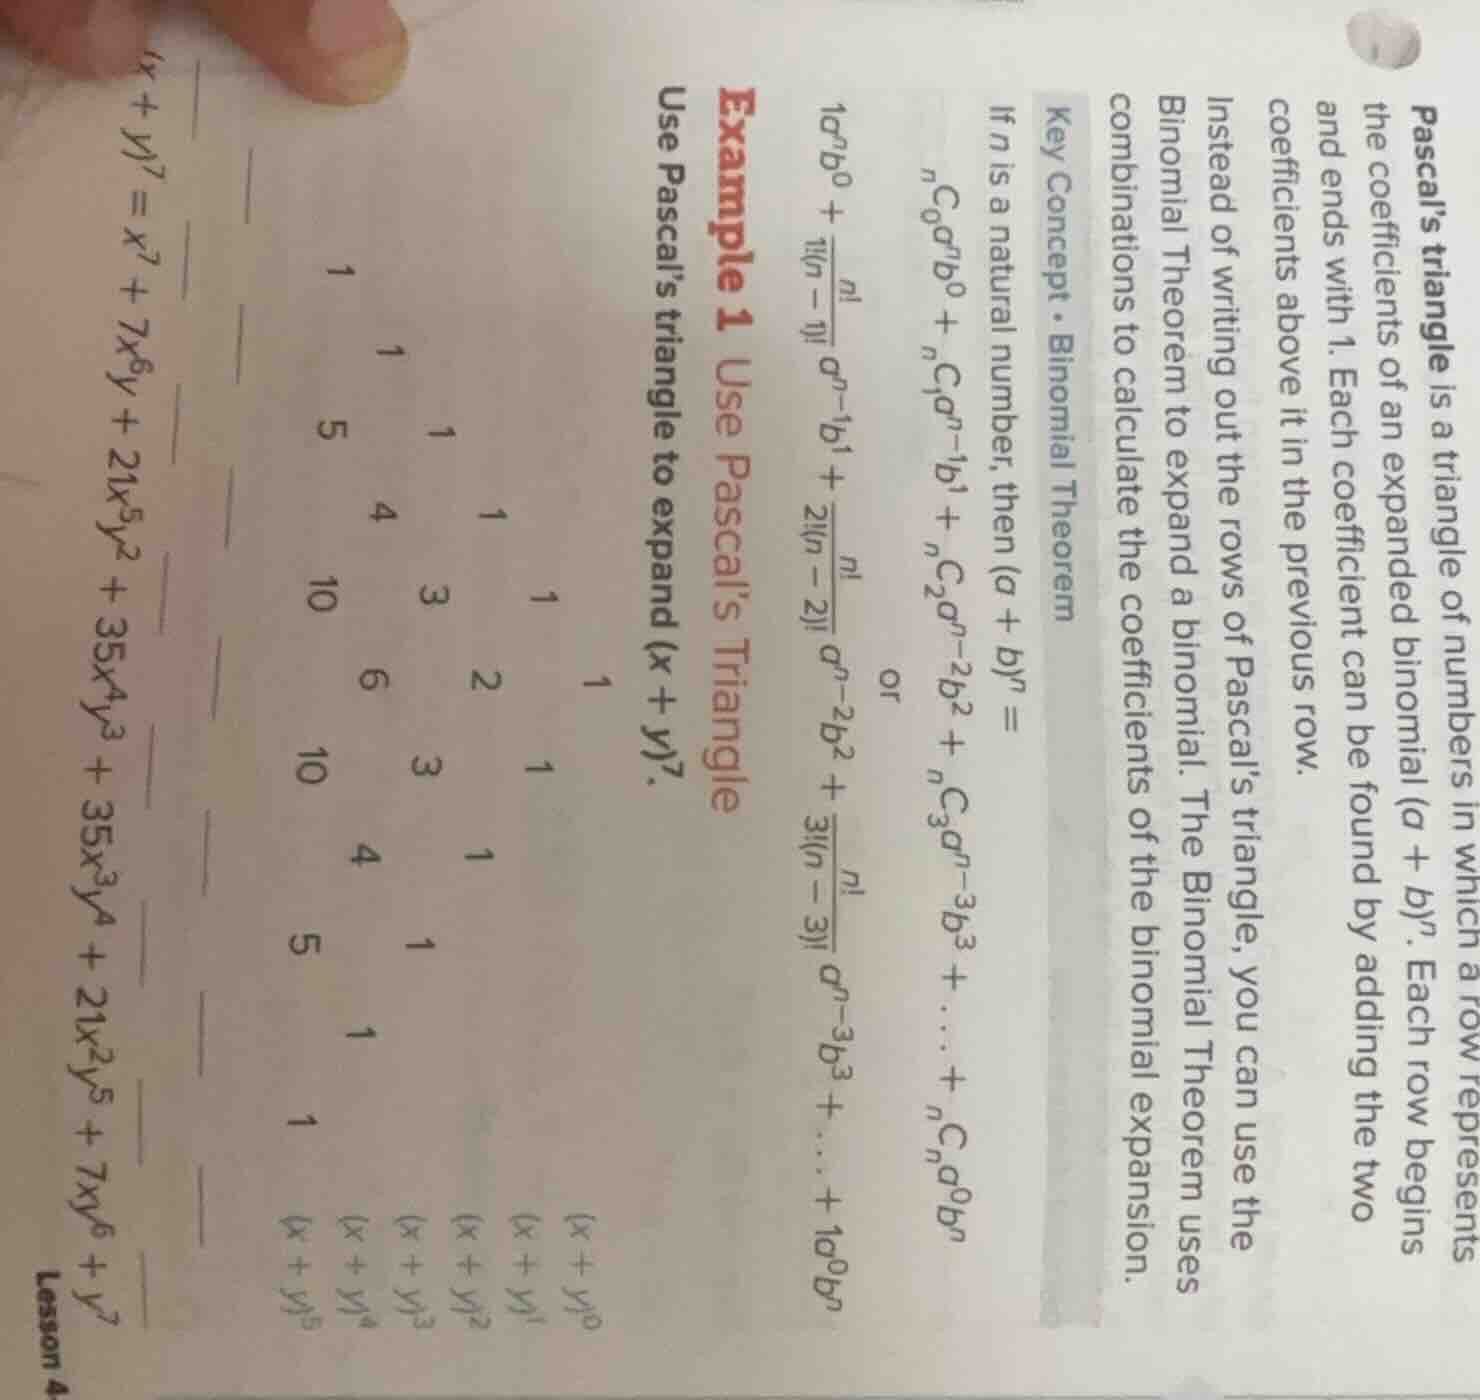 Pascal's triangle is a triangle of numbers in which a row represents
the coefficients of an expanded binomial (a + b)ⁿ. Each row begins
and ends with 1. Each coefficient can be found by adding the two
coefficients above it in the previous row.
Instead of writing out the rows of Pascal's triangle, you can use the
Binomial Theorem to expand a binomial. The Binomial Theorem uses
combinations to calculate the coefficients of the binomial expansion.
Key Concept • Binomial Theorem
If n is a natural number, then (a + b)ⁿ =
ₙC₀aⁿb⁰ + ₙC₁aⁿ⁻¹b¹ + ₙC₂aⁿ⁻²b² + ₙC₃aⁿ⁻³b³ + . . . + ₙCₙa⁰bⁿ
or
1aⁿb⁰ + n!/1!(n − 1)! aⁿ⁻¹b¹ + n!/2!(n − 2)! aⁿ⁻²b² + n!/3!(n − 3)! aⁿ⁻³b³ + . . . + 1a⁰bⁿ
Example 1 Use Pascal's Triangle
Use Pascal's triangle to expand (x + y)⁷.
1 (x + y)⁰
1 1 (x + y)¹
1 2 1 (x + y)²
1 3 3 1 (x + y)³
1 4 6 4 1 (x + y)⁴
1 5 10 10 5 1 (x + y)⁵
(x + y)⁷ = x⁷ + 7x⁶y + 21x⁵y² + 35x⁴y³ + 35x³y⁴ + 21x²y⁵ + 7xy⁶ + y⁷
Lesson 4